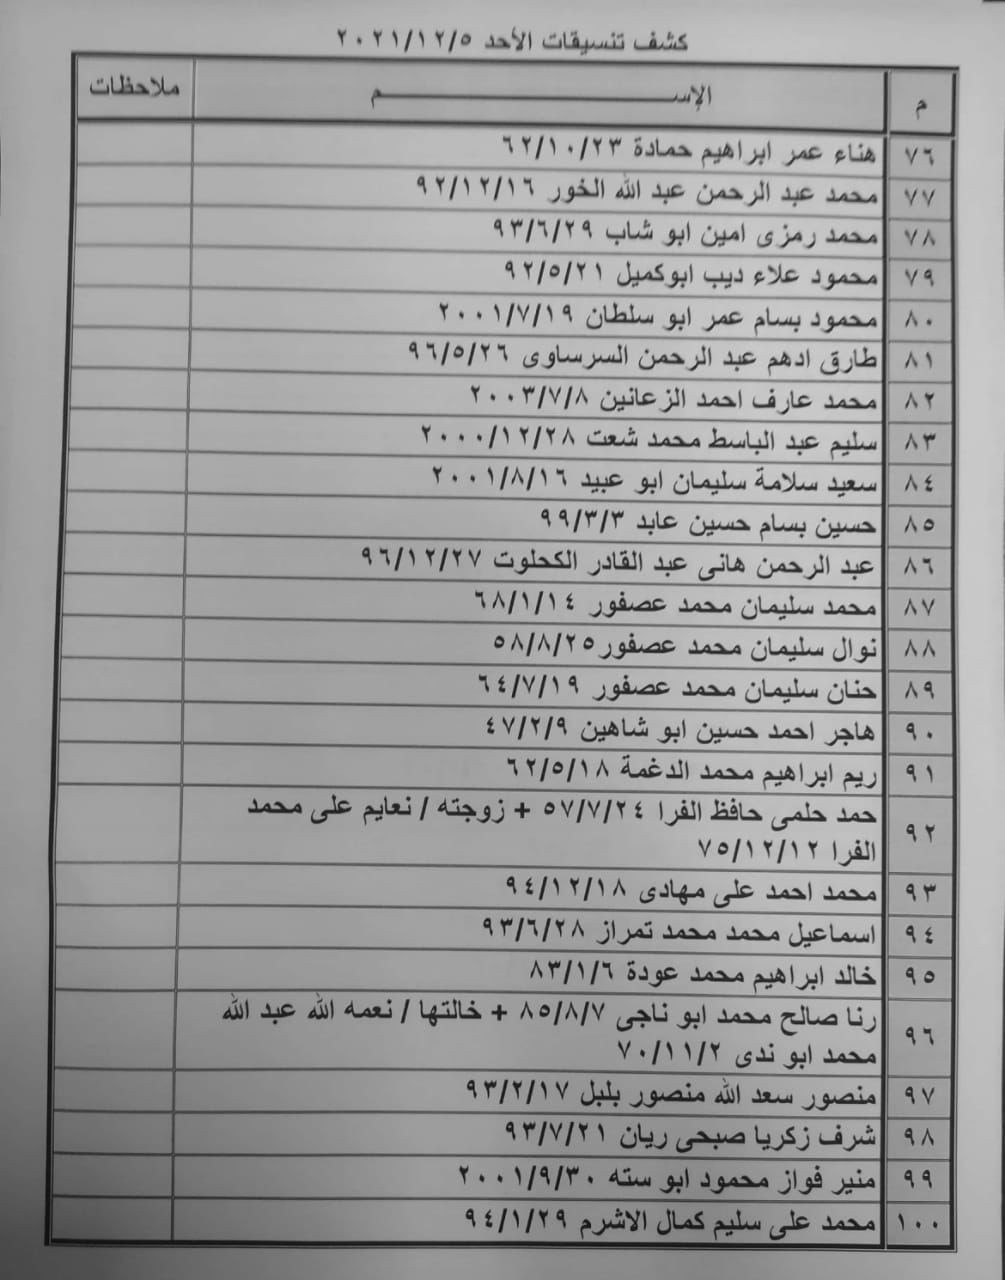 كشف تنسيقات الأحد ٢٠٢١/١٢/٥
م الإســـــــــم ملاحظات
٧٦ هناء عمر ابراهيم حمادة ٦٢/١٠/٢٣
٧٧ محمد عبد الرحمن عبد الله الخور ٩٢/١٢/١٦
٧٨ محمد رمزى امين ابو شاب ٩٣/٦/٢٩
٧٩ محمود علاء ديب ابوكميل ٩٢/٥/٢١
٨٠ محمود بسام عمر ابو سلطان ٢٠٠١/٧/١٩
٨١ طارق ادهم عبد الرحمن السرساوى ٩٦/٥/٢٦
٨٢ محمد عارف احمد الزعانين ٢٠٠٣/٧/٨
٨٣ سليم عبد الباسط محمد شعت ٢٠٠٠/١٢/٢٨
٨٤ سعيد سلامة سليمان ابو عبيد ٢٠٠١/٨/١٦
٨٥ حسين بسام حسين عابد ٩٩/٣/٣
٨٦ عبد الرحمن هانى عبد القادر الكحلوت ٩٦/١٢/٢٧
٨٧ محمد سليمان محمد عصفور ٦٨/١/١٤
٨٨ نوال سليمان محمد عصفور٥٨/٨/٢٥
٨٩ حنان سليمان محمد عصفور ٦٤/٧/١٩
٩٠ هاجر احمد حسين ابو شاهين ٤٧/٢/٩
٩١ ريم ابراهيم محمد الدغمة ٦٢/٥/١٨
٩٢ حمد حلمى حافظ الفرا ٥٧/٧/٢٤ + زوجته / نعايم على محمد
الفرا ٧٥/١٢/١٢
٩٣ محمد احمد على مهادى ٩٤/١٢/١٨
٩٤ اسماعيل محمد محمد تمراز ٩٣/٦/٢٨
٩٥ خالد ابراهيم محمد عودة ٨٣/١/٦
٩٦ رنا صالح محمد ابو ناجى ٨٥/٨/٧ + خالتها / نعمه الله عبد الله
محمد ابو ندى ٧٠/١١/٢
٩٧ منصور سعد الله منصور بلبل ٩٣/٢/١٧
٩٨ شرف زكريا صبحى ريان ٩٣/٧/٢١
٩٩ منير فواز محمود ابو سته ٢٠٠١/٩/٣٠
١٠٠ محمد على سليم كمال الاشرم ٩٤/١/٢٩